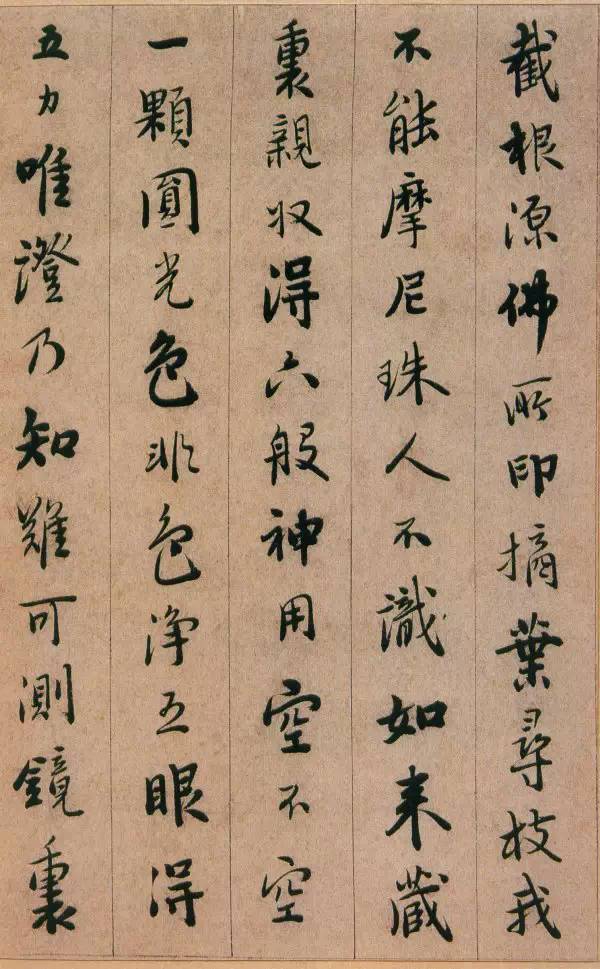 截根源佛所印摘葉尋枝我
不能摩尼珠人不識如来藏
裏親収淂六般神用空不空
一顆圓光色非色淨五眼淂
五力唯澄乃知難可測鏡裏